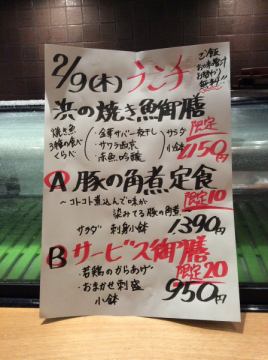 2/9(木) ランチ
ご飯
お味噌汁
お替わり
無料!!
浜の焼き魚御膳
焼き魚
3種の食べ
くらべ
・金華サバ一夜干し
・サワラ西京
・赤魚吟醸
サラダ
小鉢
限定
1150円
A 豚の角煮定食
〜コトコト煮込んで味が
染みてる豚の角煮
限定10
サラダ 刺身小鉢
1390円
B サービス御膳
・若鶏のからあげ
・おまかせ刺盛
小鉢
限定20
950円